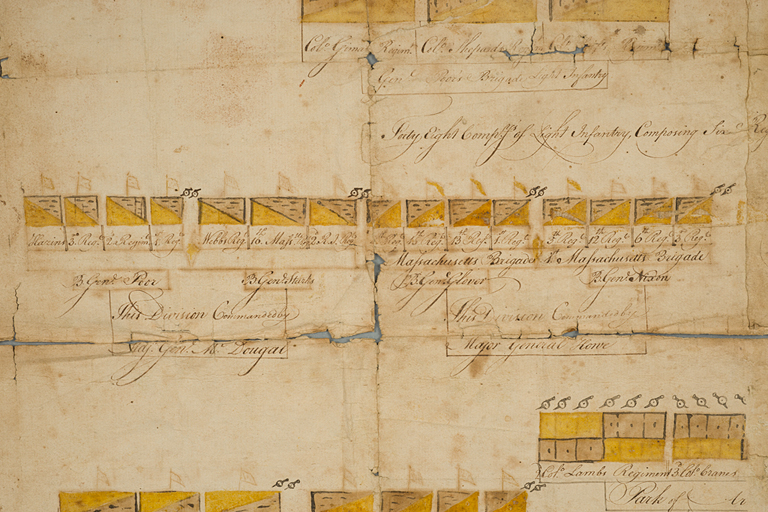 Col.º Regim.t Col.º Shepards
Gen.l Poors Brigade Light Infantry
Forty Eight Comp.ys of Light Infantry, Composing Six Reg
Hazens 3. Reg.t 2. Regim.t 1. Reg.t Webbs Reg.t 10. Mass. 2. R.I. Reg.t Reg.t 15. Reg.t 13. Reg.t 1. Reg.t 3. Reg.t 12. Reg.t 6. Reg.t 5. Reg.t
Massachusetts Brigade Massachusetts Brigade
B Gen.l Poor B Gen.l Starks B Gen.l Glover B Gen.l Nixon
This Division Commanded by This Division Commanded by
Maj. Gen.l Mc Dougal Major General Howe
Col.º Lambs Regiment Col.º Cranes
Park of Ar